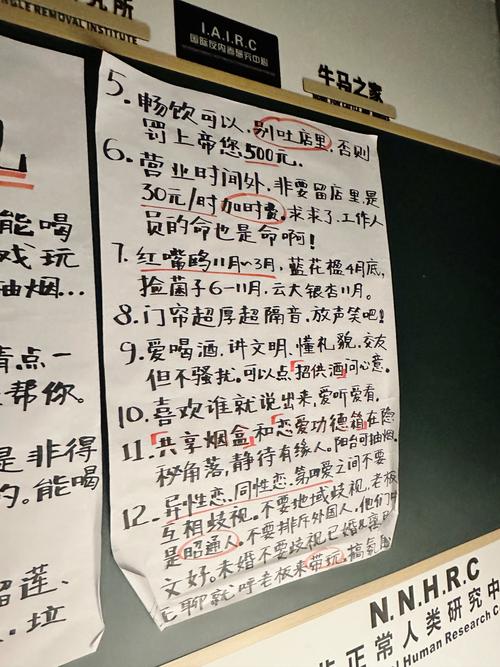 究所
NGLE REMOVAL INSTITUTE
I.A.I.R.C
国际反内卷研究中心
牛马之家
HOME FOR CATTLE AND HORSES
能喝
戏玩
抽烟...
情点一
帮你。
是非得
的。能喝
留莲、
垃
5. 畅饮可以,别吐店里,否则
罚上帝您500元.
6. 营业时间外,非要留店里,是
30元/时加时费。求求了,工作人
员的命也是命啊!
7. 红嘴鸥11月~3月,蓝花楹4月底,
捡菌子6-11月.云大银杏11月。
8. 门帘超厚超隔音,放声笑吧!
9. 爱喝酒、讲文明、懂礼貌,交友
但不骚扰。可以点「招供酒」问心意。
10. 喜欢谁就说出来,爱听爱看.
11. 「共享烟盒」和「恋爱功德箱」在隐
秘角落,静待有缘人。阳台可抽烟.
12. 异性恋、同性恋、第四爱之间不要
互相歧视。不要地域歧视,老板
是昭通人。不要排斥外国人,他们中
文好。未婚不要歧视已婚&离
无聊就呼老板来带玩,搞氛围
N.N.H.R.C
正常人类研究中
l Human Research C